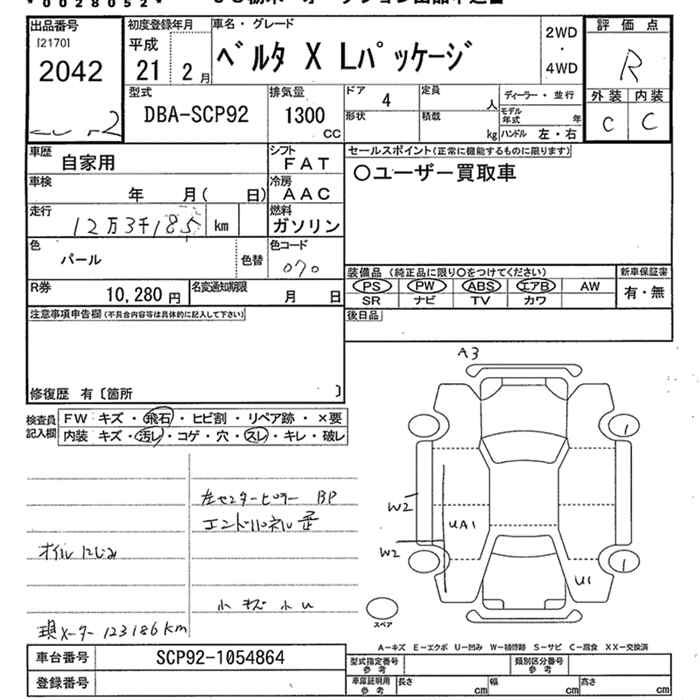 *0028052*
出品番号
[2170]
2042
初度登録年月
平成
21 2月
車名・グレード
ベルタ X Lパッケージ
2WD
・
4WD
評価点
R
外装 内装
C C
型式
DBA-SCP92
排気量
1300
CC
ドア 4
形状
定員 人
積載 kg
ディーラー・並行
モデル年式 年
ハンドル 左・右
車歴 自家用
シフト FAT
車検 年 月( 日)
冷房 AAC
走行 12万3千185 km
燃料 ガソリン
色 パール
色替
色コード 070
R券 10,280円
名変通知期限 月 日
セールスポイント(正常に機能するものに限ります)
○ユーザー買取車
装備品(純正品に限り○をつけてください)
PS PW ABS エアB AW
SR ナビ TV カワ
新車保証書
有・無
後日品
注意事項申告欄(不具合内容等は具体的に記入して下さい)
修復歴 有〔箇所 〕
検査員記入欄
FW キズ・飛石・ヒビ割・リペア跡・×要
内装 キズ・汚レ・コゲ・穴・スレ・キレ・破レ
A3
1
W2
UA1
W2
1
U1
スペア
左センターピラー BP
エンドパネル 歪
オイルにじみ
小キズ 小U
現メーター 123186km
A-キズ E-エクボ U-凹み W-補修跡 S-サビ C-腐食 XX-交換済
車台番号 SCP92-1054864
登録番号
型式指定番号 参考
類別区分番号 参考
車庫証明用 参考
長さ cm
幅 cm
高さ cm